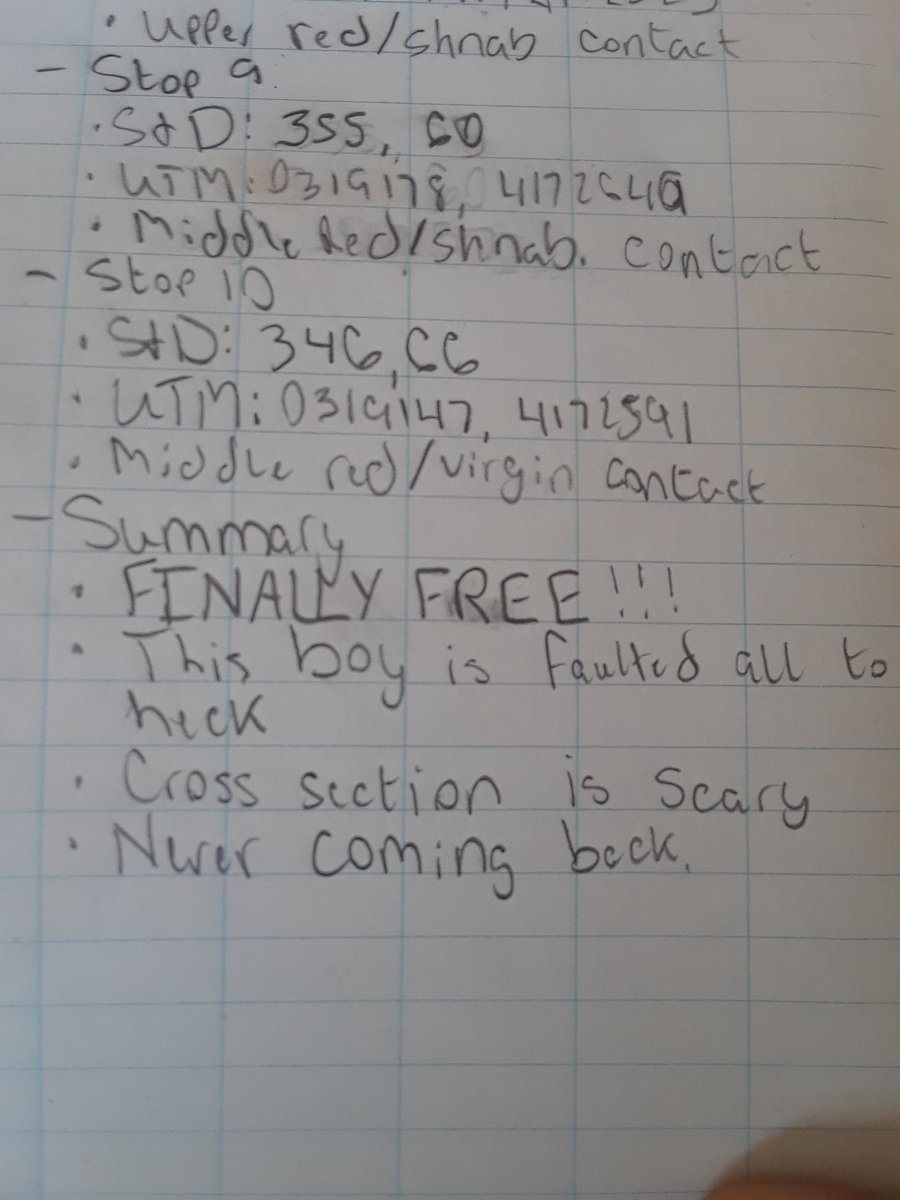 • upper red/shnab contact
- Stop 9
• S&D: 355, 60
• UTM: 0319178, 4172649
• Middle Red/shnab. contact
- Stop 10
• S&D: 346, 66
• UTM: 0319147, 4172591
• Middle red/virgin contact
- Summary
• FINALLY FREE!!!
• This boy is faulted all to
heck
• Cross section is scary
• Never coming back.